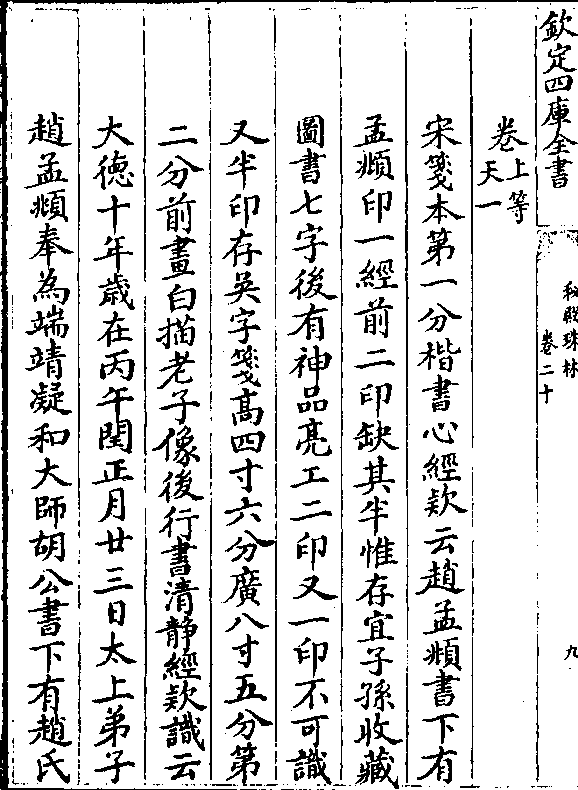 欽定四庫全書
秘殿珠林
卷二十
九
卷上等
天一
宋箋本第一分楷書心經欵云趙孟頫書下有
孟頫印一經前二印缺其半惟存宜子孫收藏
圖書七字後有神品亮工二印又一印不可識
又半印存吳字箋高四寸六分廣八寸五分第
二分前畫白描老子像後行書清静經欵識云
大德十年歲在丙午閏正月廿三日太上弟子
趙孟頫奉為端靖凝和大師胡公書下有趙氏